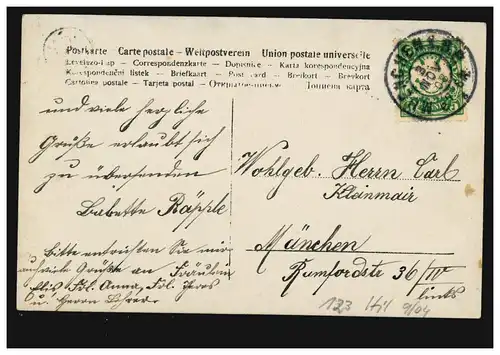 Postkarte Carte postale – Weltpostverein Union postale universelle
Levelező-Lap – Correspondenzkarte – Dopisnice – Karta korespondencyjna
Korespondenční lístek – Briefkaart – Post card – Brevkort – Brevkort
Cartolina postale – Tarjeta postal –
MÜNCHEN
und viele herzliche
Grüße erlaubt sich
zu übersenden
Babette Räpple
Bitte entrichten Sie mir
auch viele Grüße an Fräulein
Frl. Anna, Frl.
u. Herrn Lehrer.
Wohlgeb. Herrn Carl
Kleinmair
München
Rumfordstr 36/IV
links
133
9/04